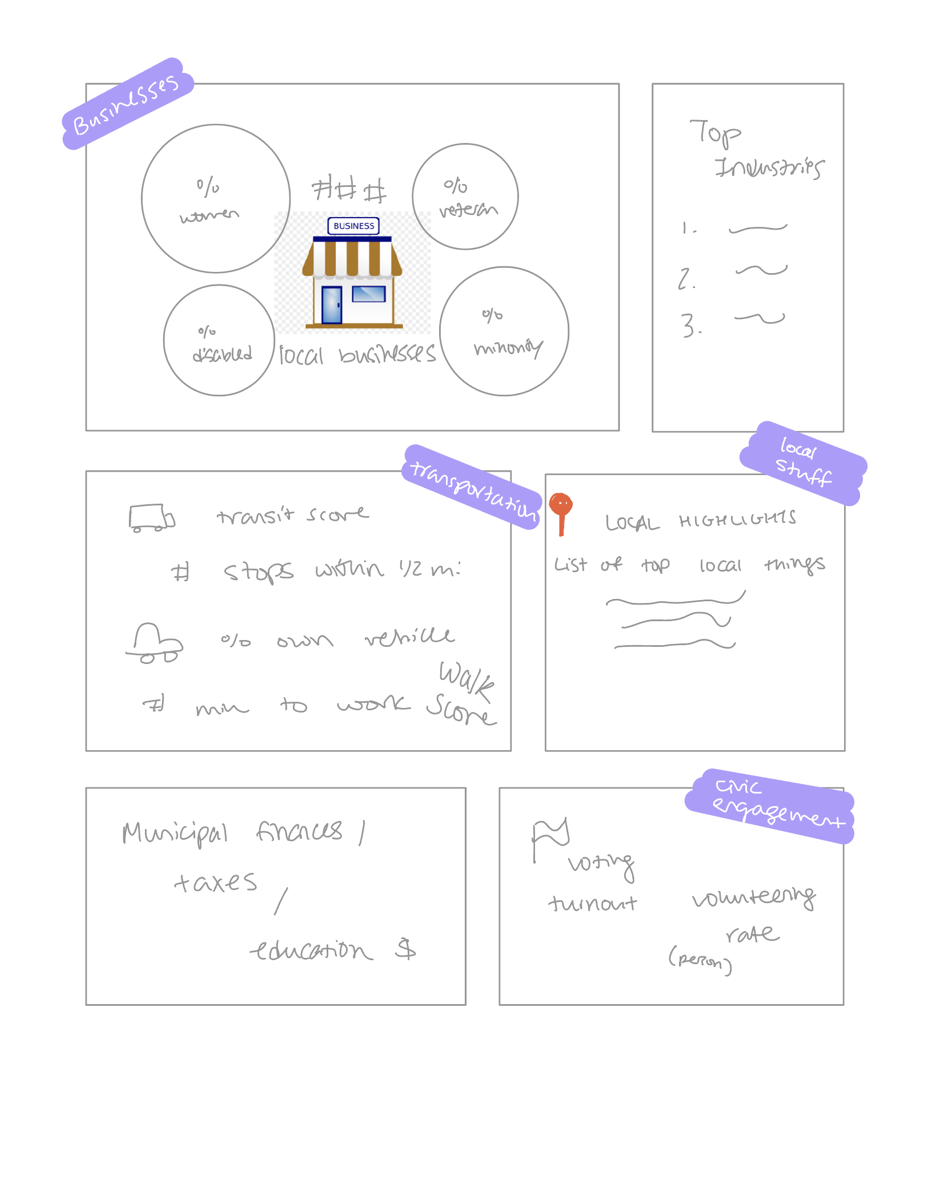 Businesses
%
women
###
%
veteran
BUSINESS
%
disabled
local businesses
%
minority
Top
Industries
1.
2.
3.
transportation
transit score
# stops within 1/2 mi
% own vehicle
# min to work
Walk
Score
local
stuff
LOCAL HIGHLIGHTS
List of top local things
Municipal finances /
taxes /
education $
civic
engagement
voting
turnout
volunteering
rate
(person)